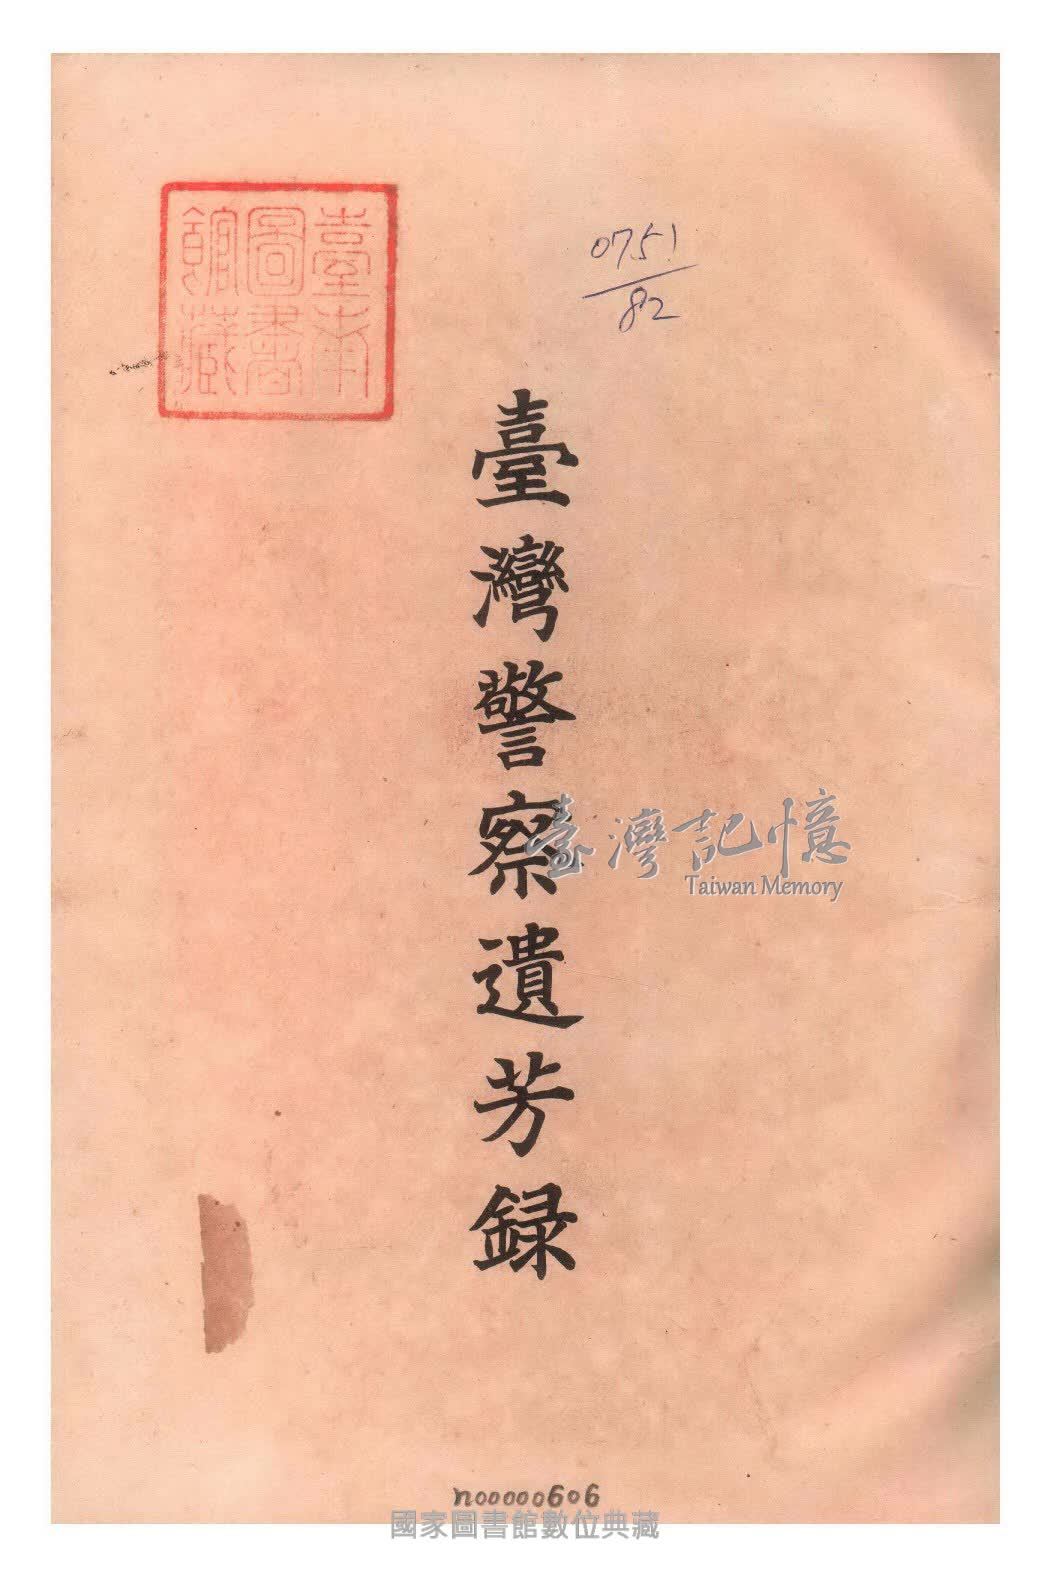 臺南
圖書
館藏
0751
82
臺灣警察遺芳録
臺灣記憶
Taiwan Memory
n00000606
國家圖書館數位典藏